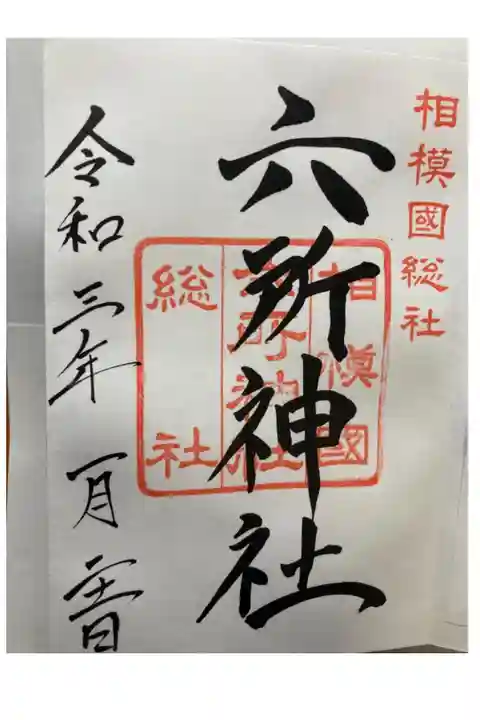 相模國総社
六所神社
相模國
六所神社
総社
令和三年一月